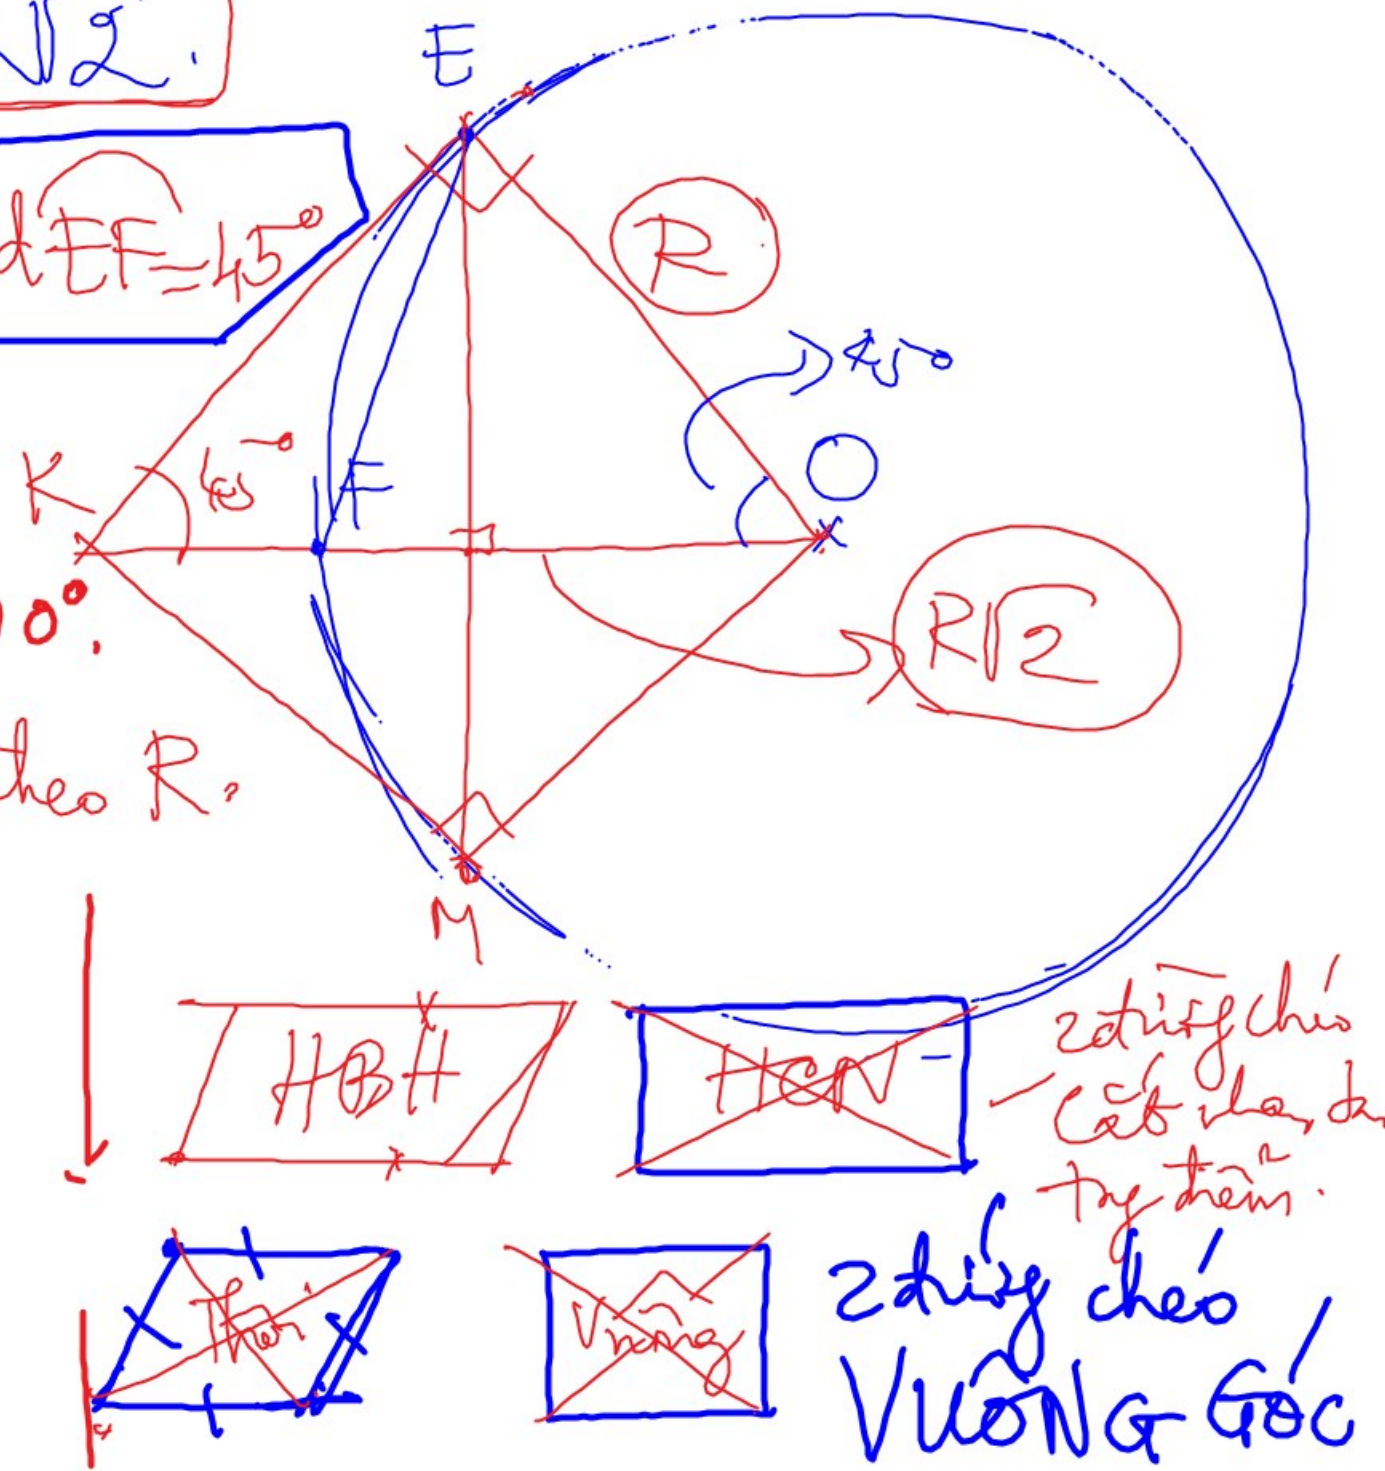 √2.
E
sđ EF = 45°
R
45°
K
45°
F
O
R√2
0°.
theo R.
M
HBH
HCN
2 đường chéo
cắt nhau
trung điểm.
Thoi
Vuông
2 đường chéo
VUÔNG GÓC